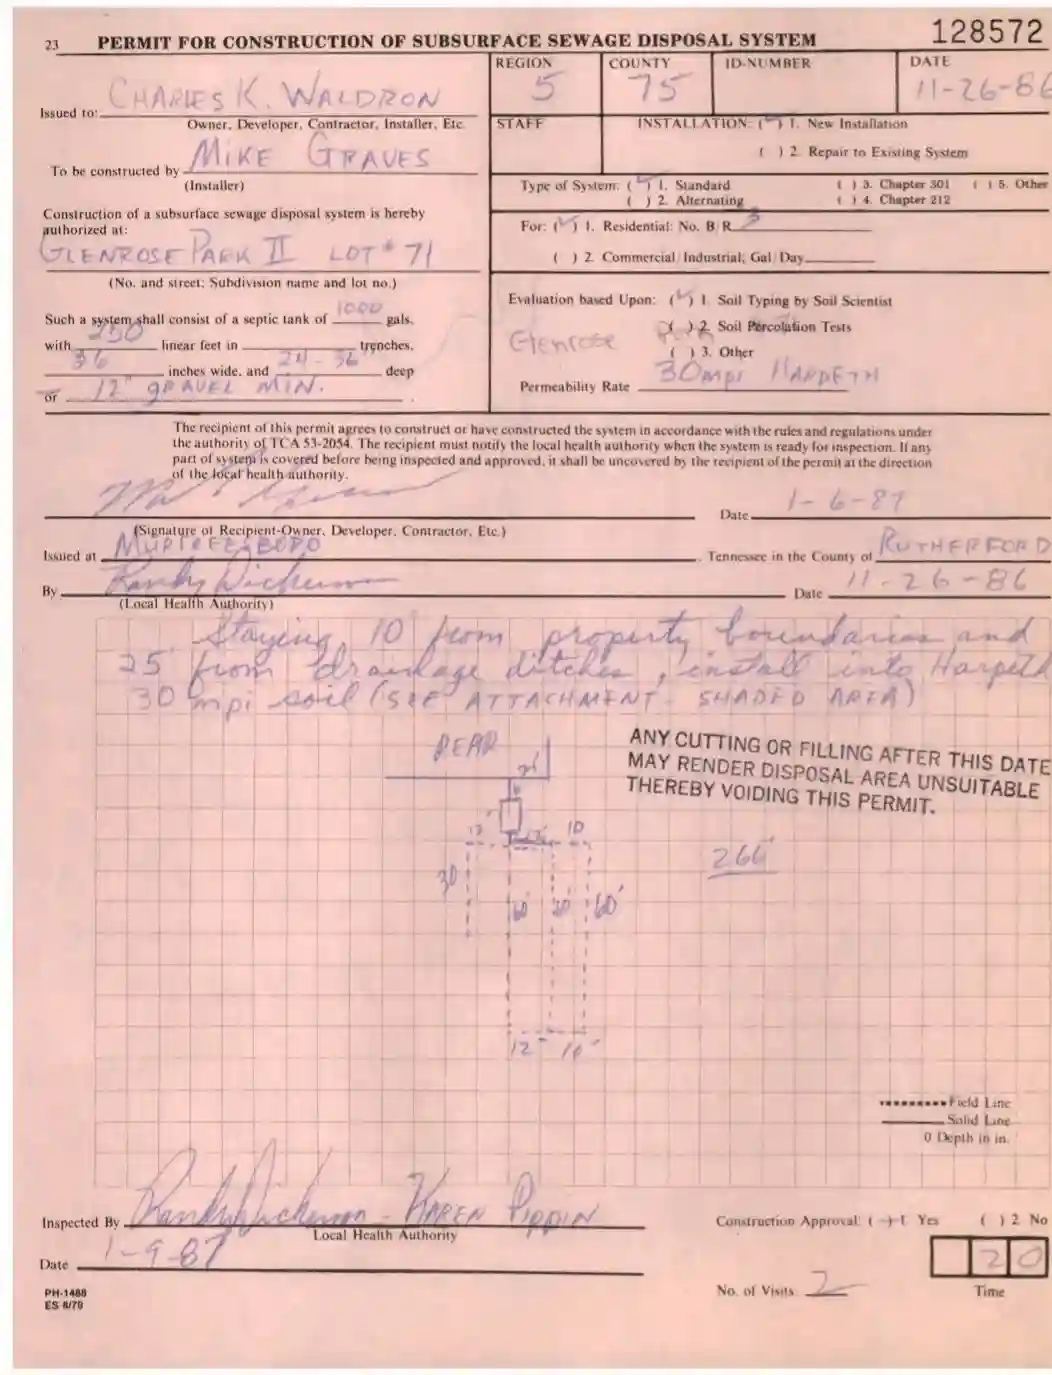 23 PERMIT FOR CONSTRUCTION OF SUBSURFACE SEWAGE DISPOSAL SYSTEM 128572
Issued to: CHARLES K. WALDRON
Owner, Developer, Contractor, Installer, Etc.
To be constructed by MIKE GRAVES
(Installer)
Construction of a subsurface sewage disposal system is hereby
authorized at:
GLENROSE PARK II LOT # 71
(No. and street; Subdivision name and lot no.)
Such a system shall consist of a septic tank of 1000 gals.
with 250 linear feet in trenches.
36 inches wide, and 24-36" deep
or 12" gravel MIN.
REGION 5
COUNTY 75
ID-NUMBER
DATE 11-26-86
STAFF
INSTALLATION: ( ) 1. New Installation
( ) 2. Repair to Existing System
Type of System: ( ) 1. Standard ( ) 3. Chapter 301 ( ) 5. Other
( ) 2. Alternating ( ) 4. Chapter 212
For: ( ) 1. Residential: No. B/R 3
( ) 2. Commercial/Industrial; Gal/Day
Evaluation based Upon: ( ) 1. Soil Typing by Soil Scientist
( ) 2. Soil Percolation Tests
Glenrose Park
( ) 3. Other
Permeability Rate 30mpi HARPETH
The recipient of this permit agrees to construct or have constructed the system in accordance with the rules and regulations under
the authority of TCA 53-2054. The recipient must notify the local health authority when the system is ready for inspection. If any
part of system is covered before being inspected and approved, it shall be uncovered by the recipient of the permit at the direction
of the local health authority.
Date 1-6-87
(Signature of Recipient-Owner, Developer, Contractor, Etc.)
Issued at MURFREESBORO, Tennessee in the County of RUTHERFORD
By Randy Dickerson Date 11-26-86
(Local Health Authority)
Staying 10' from property boundaries and
25' from drainage ditches, install into Harpeth
30 mpi soil (SEE ATTACHMENT - SHADED AREA)
ANY CUTTING OR FILLING AFTER THIS DATE
MAY RENDER DISPOSAL AREA UNSUITABLE
THEREBY VOIDING THIS PERMIT.
REAR
10
266'
30
60' 60'
12 10'
Field Line
Solid Line
0 Depth in in.
Inspected By Randy Dickerson - KAREN PIPPIN
Local Health Authority
Construction Approval: ( ) 1. Yes ( ) 2. No
Date 1-9-87
20
No. of Visits 2
Time
PH-1488
ES 8/79